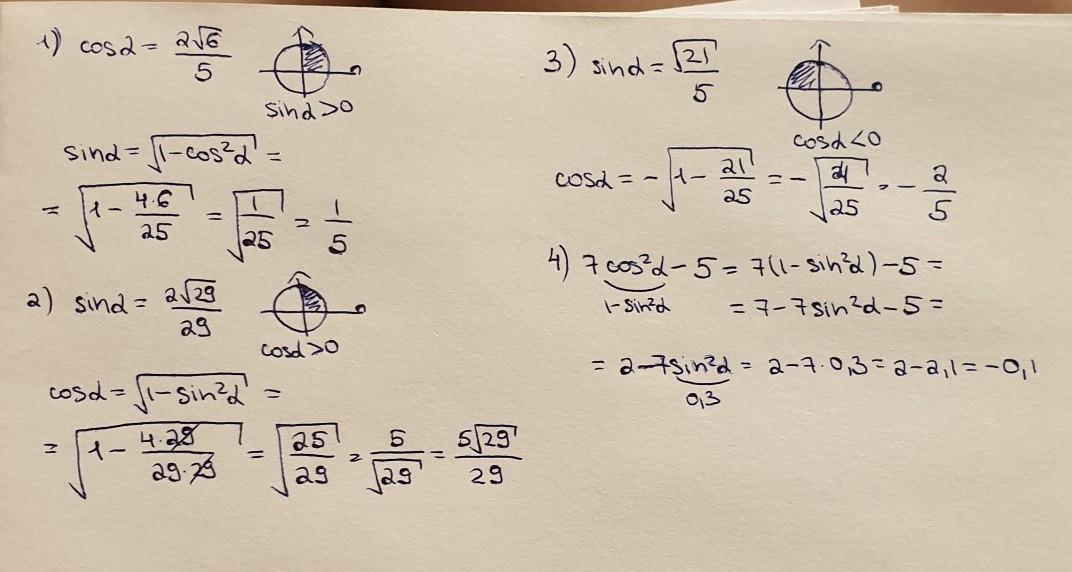 1) cosα = 2√6/5
sinα>0
sinα = √(1-cos²α) =
= √(1 - 4·6/25) = √(1/25) = 1/5
2) sinα = 2√29/29
cosα>0
cosα = √(1-sin²α) =
= √(1 - 4·29/29·29) = √(25/29) = 5/√29 = 5√29/29
3) sinα = √21/5
cosα<0
cosα = -√(1 - 21/25) = -√(4/25) = -2/5
4) 7cos²α - 5 = 7(1-sin²α) - 5 =
1-sin²α
= 7-7sin²α-5 =
= 2-7sin²α = 2-7·0,3 = 2-2,1 = -0,1
0,3